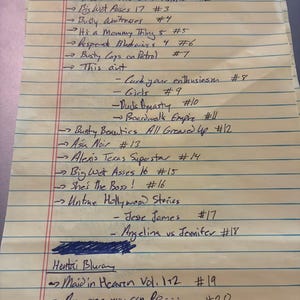 → Big Wet Asses 17 #3
→ #4
→ It's a Mommy Thing 5 #5
→ Desperate 4 #6
→ Busty Cops on Patrol #7
→ This ain't
- Curb your enthusiasm #8
- Girls #9
- Duck Dynasty #10
- Boardwalk Empire #11
→ Busty Beauties All Greased Up #12
→ Asia Noir #13
→ Alexis Texas Superstar #14
→ Big Wet Asses 16 #15
→ She's the Boss! #16
→ Untrue Hollywood Stories
- Jesse James #17
- Angelina vs Jennifer #18
Hentai Bluray
→ Maid in Heaven Vol. 1+2 #19